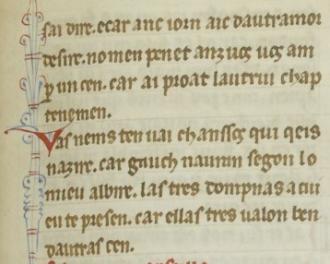 sai dire. ecar anc iorn aic dautramor
desire. no men penet anz ucs ucs am
p un cen. car ai proat lautrui chap
tenemen.
Vas nems ten uai chansos qui qeis
nazire. car gauch naurim segon lo
mieu albire. las tres dompnas a cui
eu te presen. car ellas tres ualon ben
dautras cen.